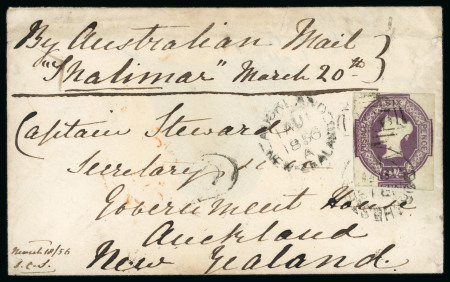 By Australian Mail
"Shalimar" March 20th
AUCKLAND
AU
1856
A
NEW ZEALAND
Captain Steward
Secretary
Government House
Auckland
New Zealand.
March 18/56
PENCE